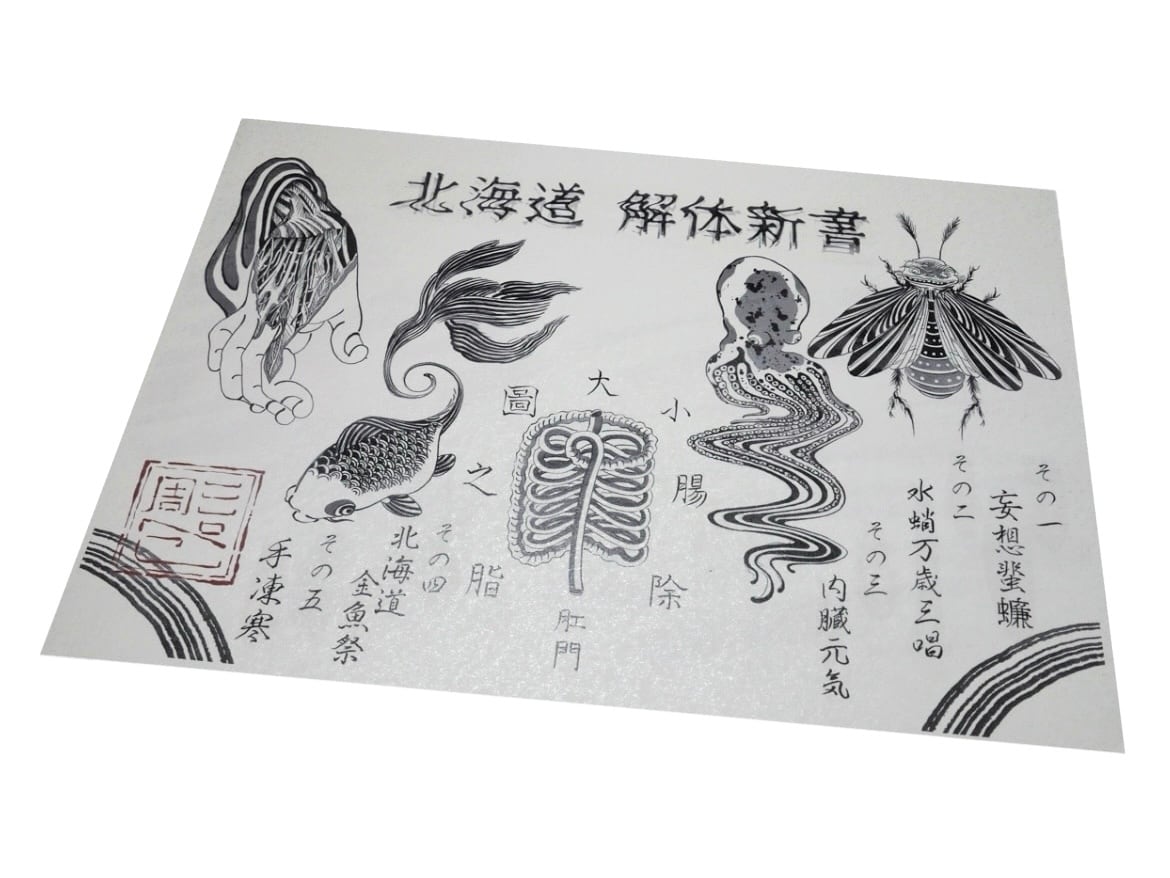 北海道 解体新書
大小腸除脂之圖
肛門
その一
妄想蜚蠊
その二
水蛸万歳三唱
その三
内臓元気
その四
北海道
金魚祭
その五
手凍寒